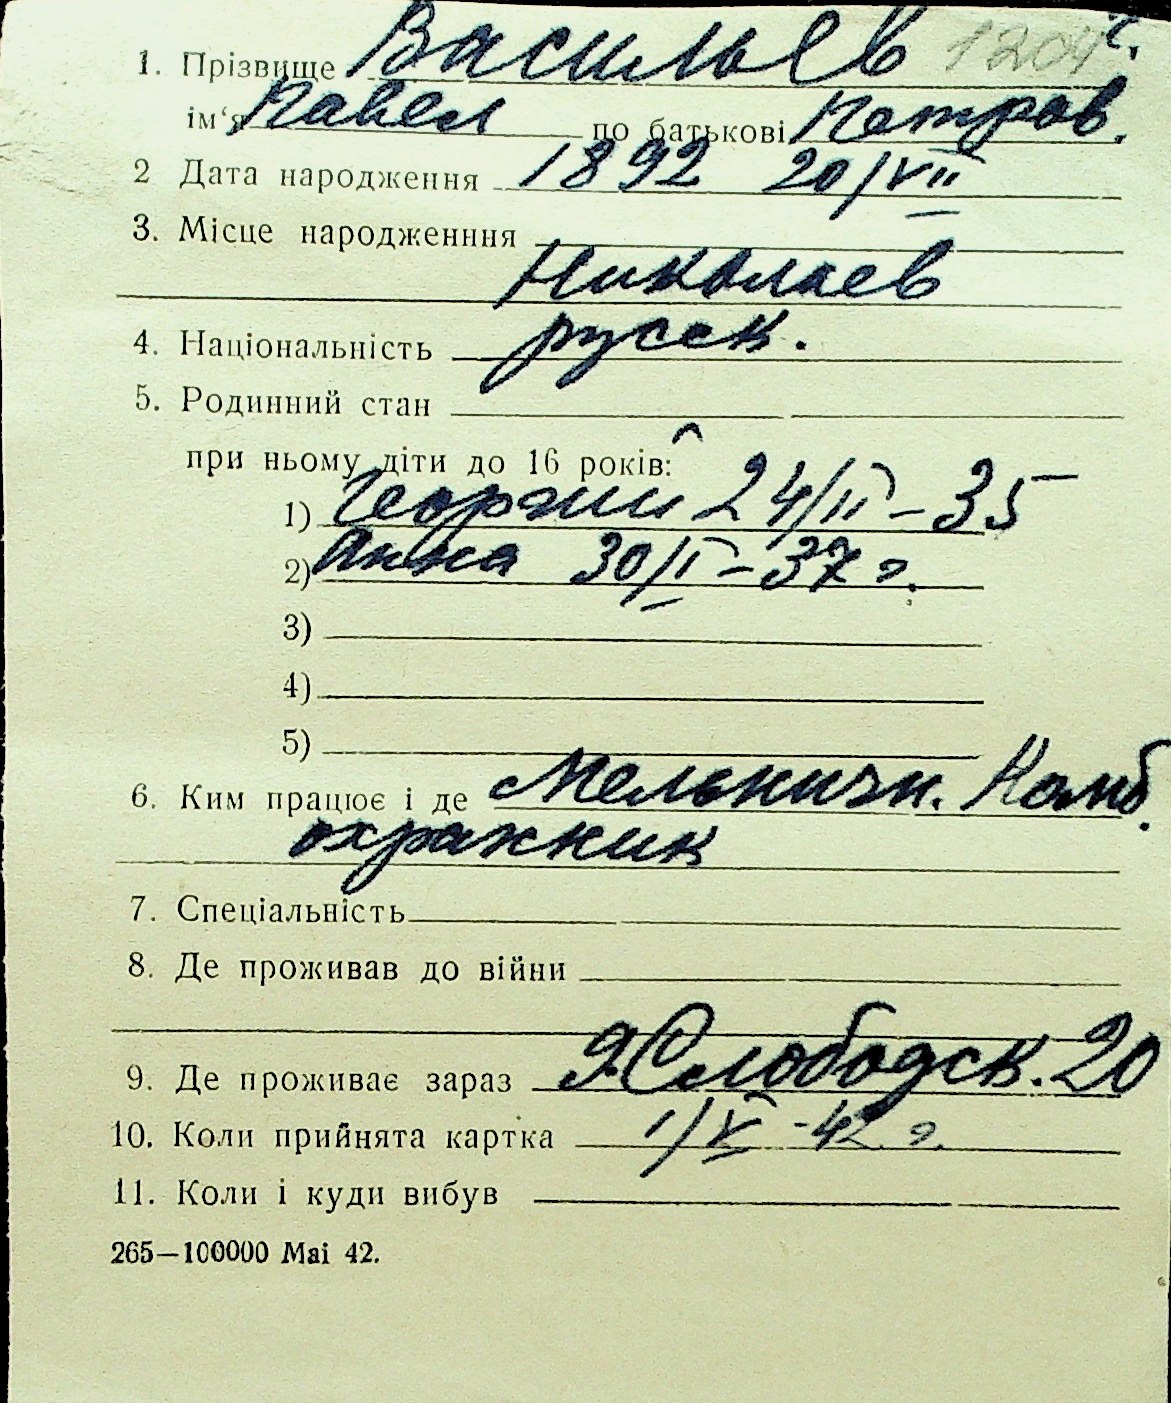 1. Прізвище Васильев 1204
ім‘я Павел по батькові Петров.
2 Дата народження 1892 20/VII
3. Місце народженння
Николаев
4. Національність русск.
5. Родинний стан
при ньому діти до 16 років:
1) Георгии 24/II – 35
2) Анна 30/I – 37 г.
3)
4)
5)
6. Ким працює і де Мельничн. Комб.
охранник
7. Спеціальність
8. Де проживав до війни
9. Де проживає зараз Слободск. 20
10. Коли прийнята картка 1/V - 42 г.
11. Коли і куди вибув
265—100000 Mai 42.